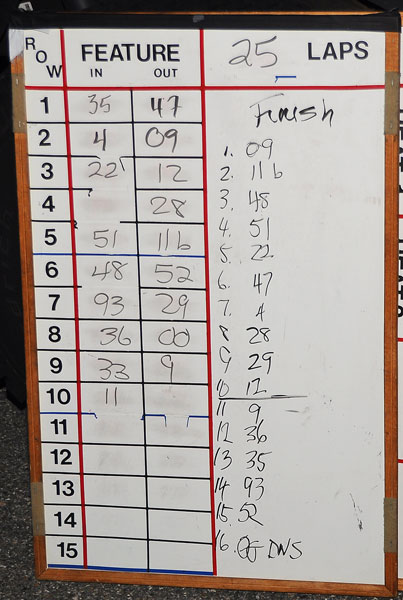 ROW FEATURE 25 LAPS
IN OUT
1 35 47
2 4 09
3 22 12
4 28
5 51 11b
6 48 52
7 93 29
8 36 00
9 33 9
10 11
11
12
13
14
15
Finish
1. 09
2. 11b
3. 48
4. 51
5. 22
6. 47
7. 4
8 28
9 29
10 12
11 9
12 36
13 35
14 93
15. 52
16. DNS